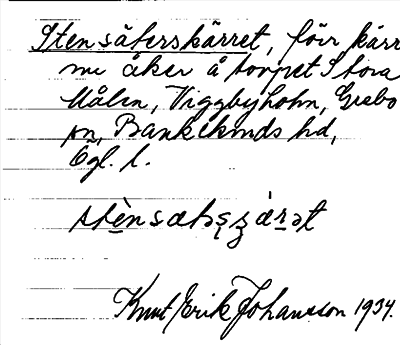 Stensäterskärret, förr kärr
nu åker å torpet Stora
Målen, Viggbyholm, Grebo
sn, Bankekinds hd,
Ögl. l.
Knut Erik Johansson 1934.